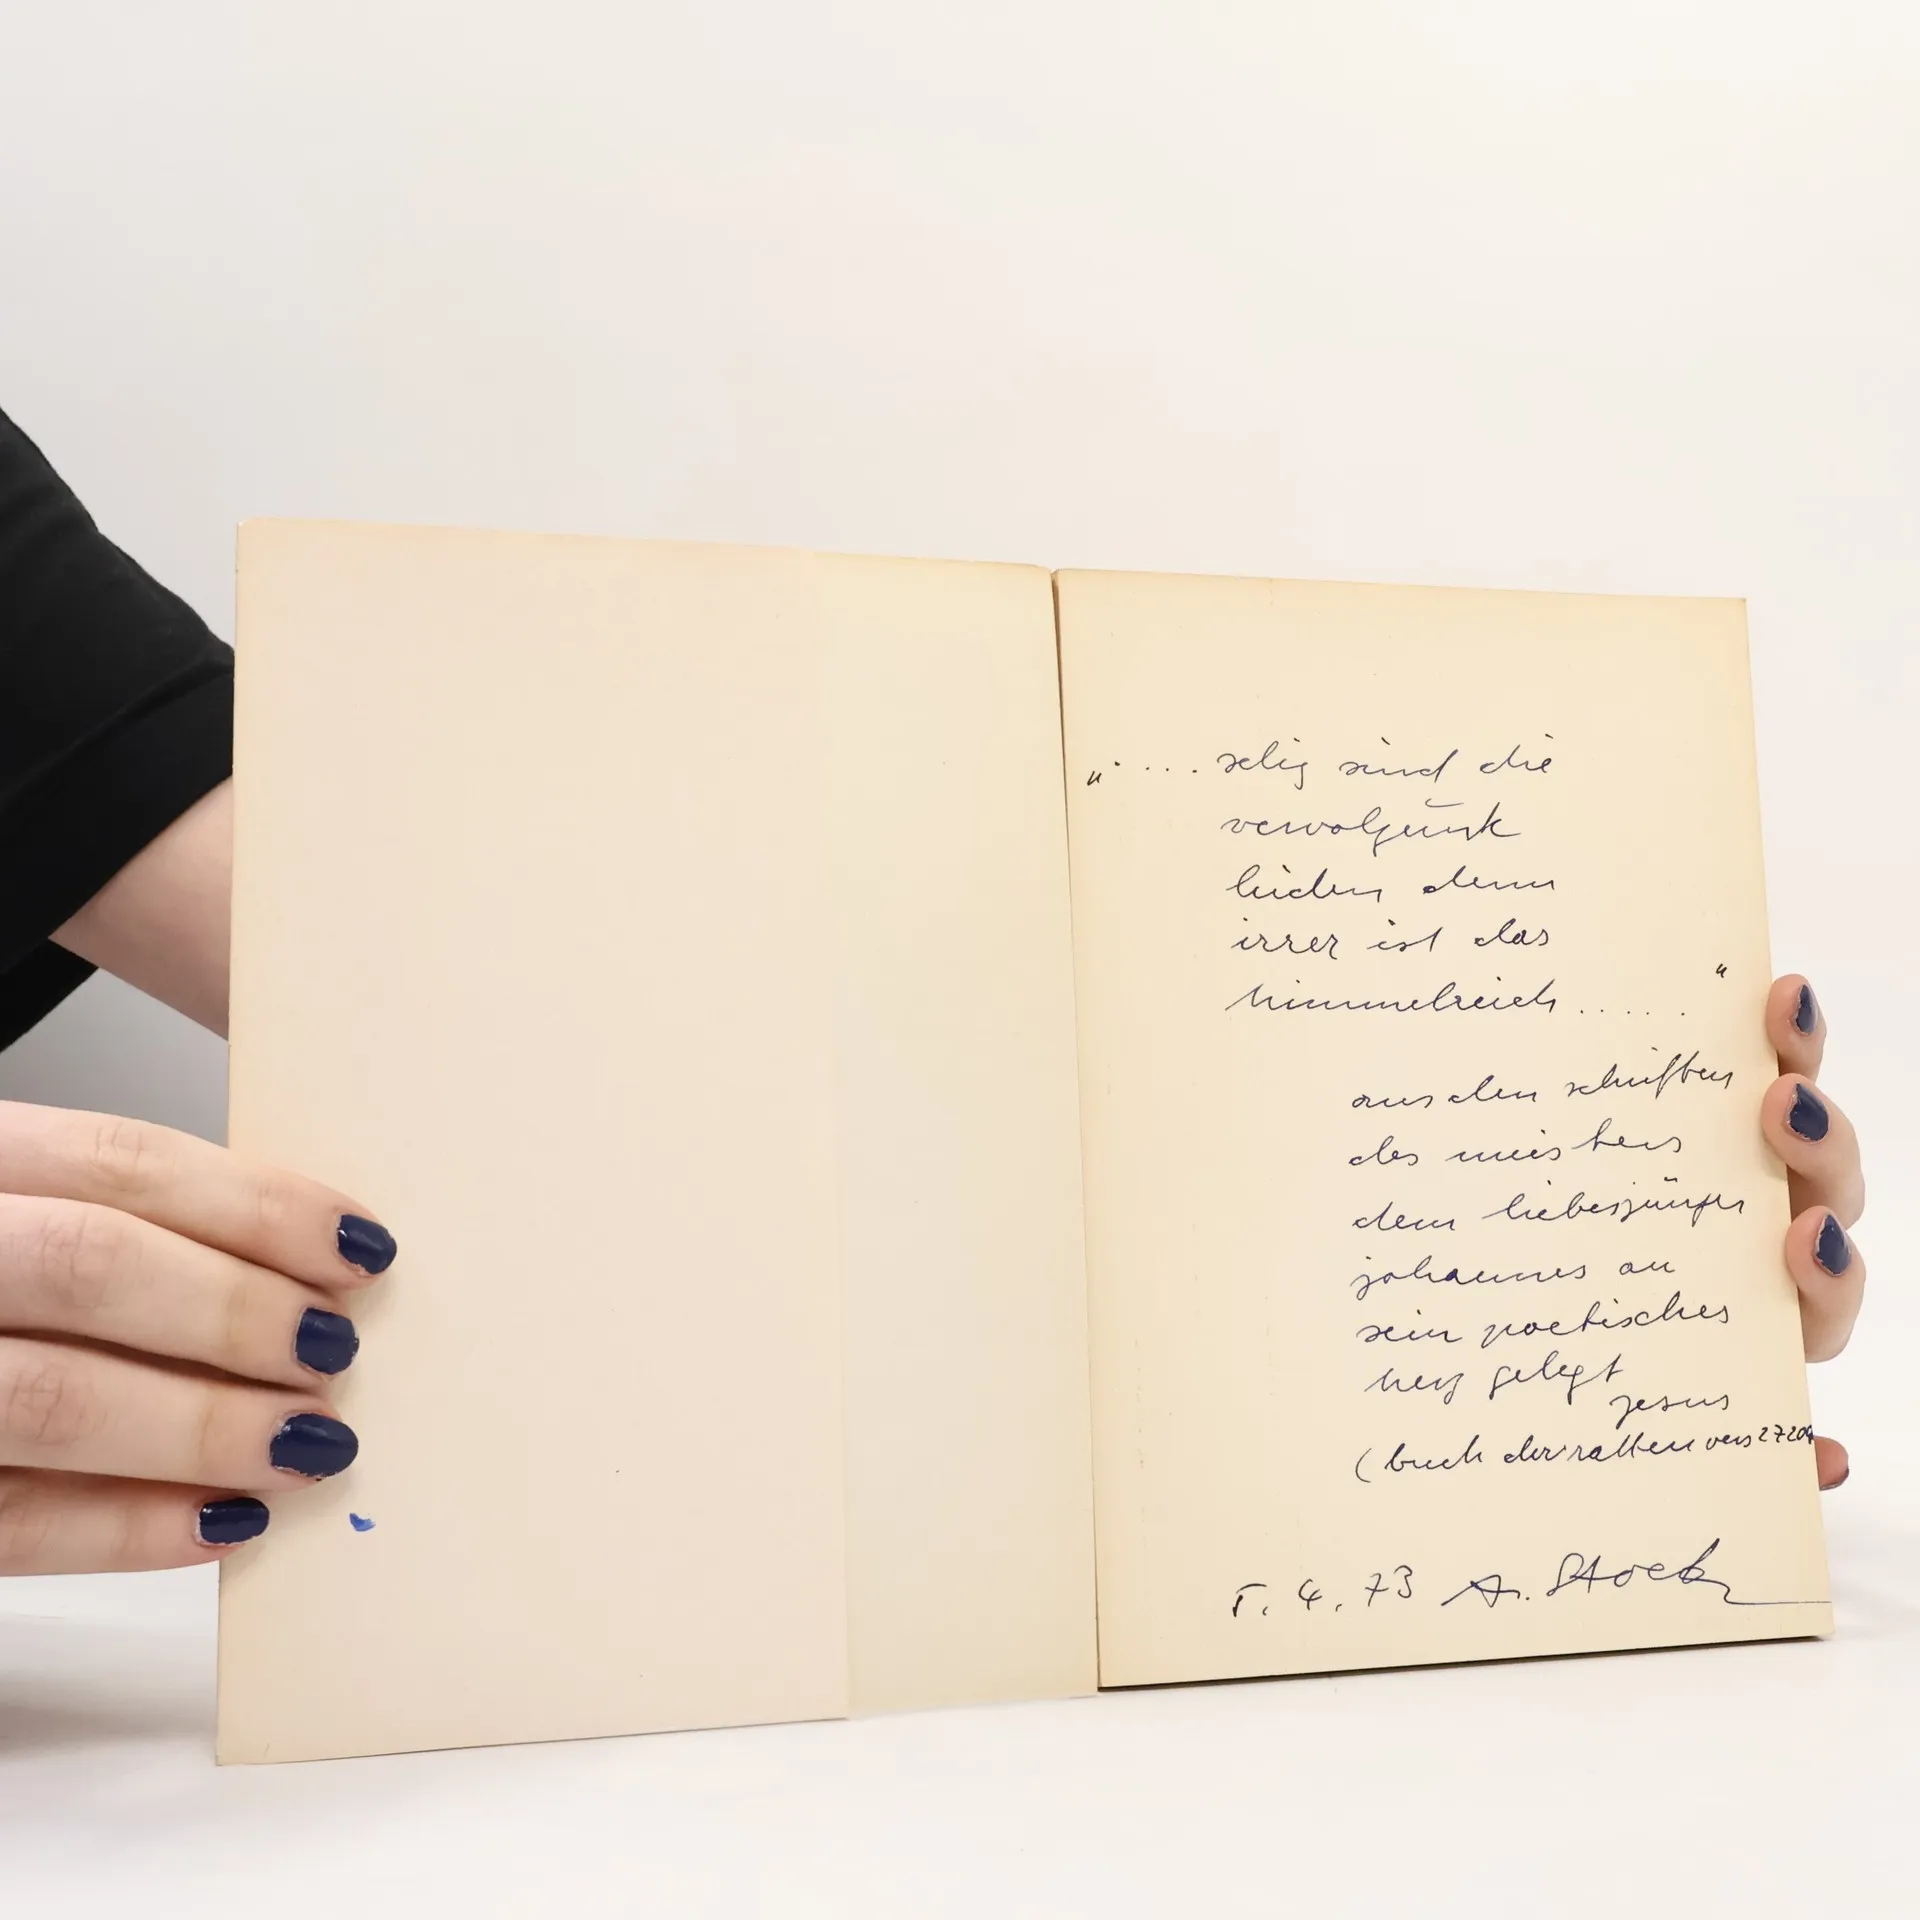 „ .... selig sind die
vervolgünk
leiden denn
irrer ist das
himmelreich ..... "
aus den schriften
des meisters
dem liebesjünger
johannes an
sein poetisches
herz gelegt
jesus
(buch der ratten vers
5. 4. 73 A. Stock